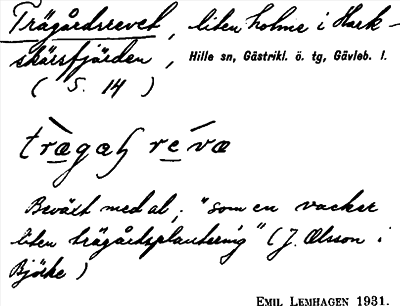 Trägårdsrevet, liten holme i Hark-
skärsfjärden, Hille sn, Gästrikl. ö. tg, Gävleb. l.
(S. 14)
träga&#x27;ꞕ révæ
Beväxt med al; "som en vacker
liten trägårdsplantering" (J. Olsson i
Björke)
EMIL LEMHAGEN 1931.